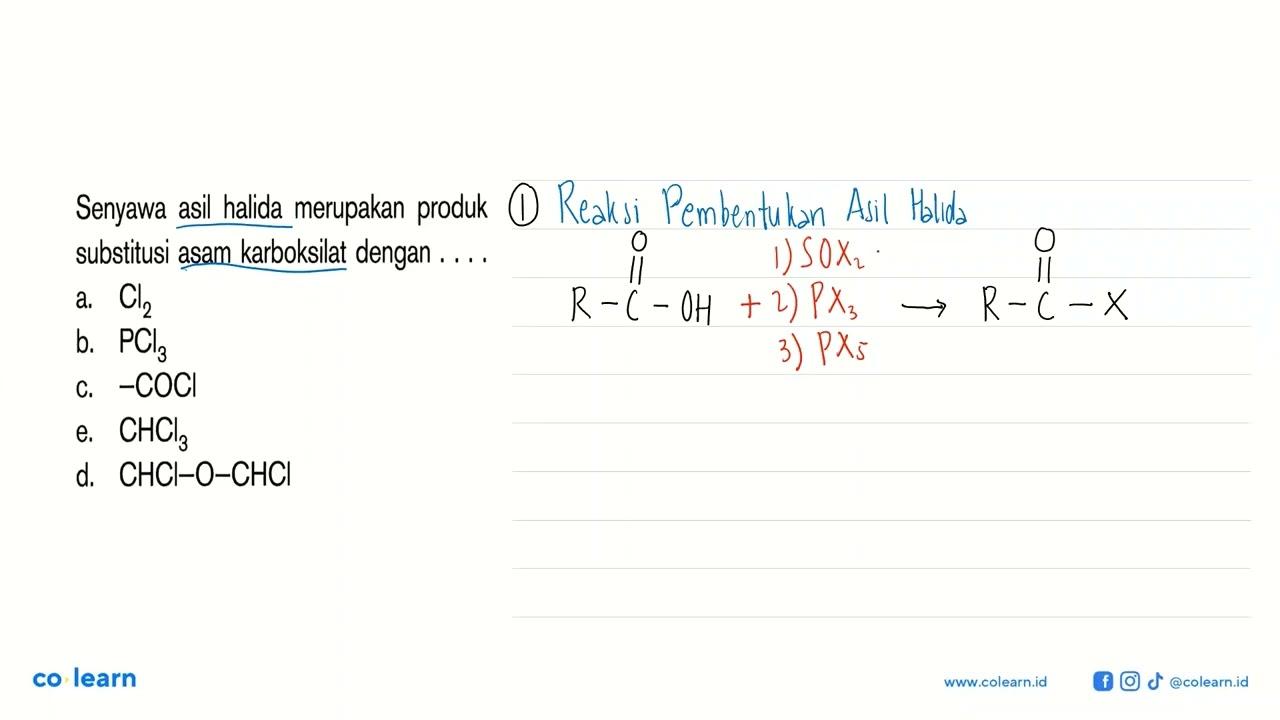 Senyawa asil halida merupakan produk
substitusi asam karboksilat dengan . . . .
a. Cl₂
b. PCl₃
c. –COCl
e. CHCl₃
d. CHCl–O–CHCl
① Reaksi Pembentukan Asil Halida
O
||
R – C – OH + 1) SOX₂
2) PX₃
3) PX₅
→
O
||
R – C – X
co learn
www.colearn.id
@colearn.id